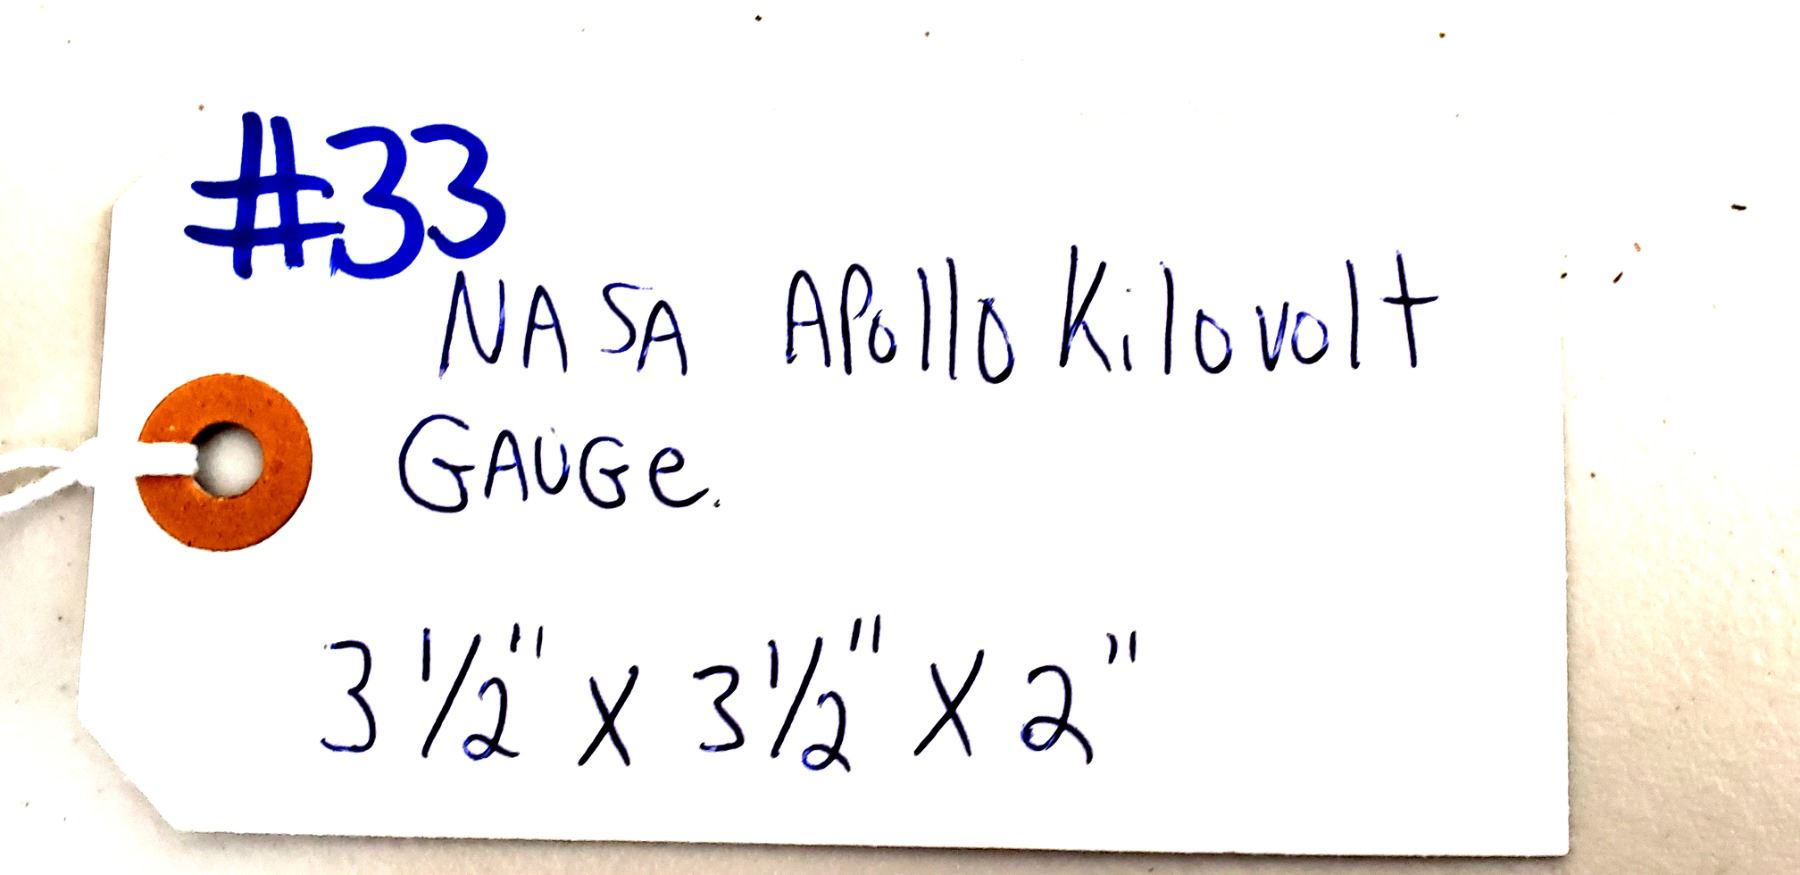 #33
NASA APollo Kilovolt
GAUGe.
3 1/2" X 3 1/2" X 2"